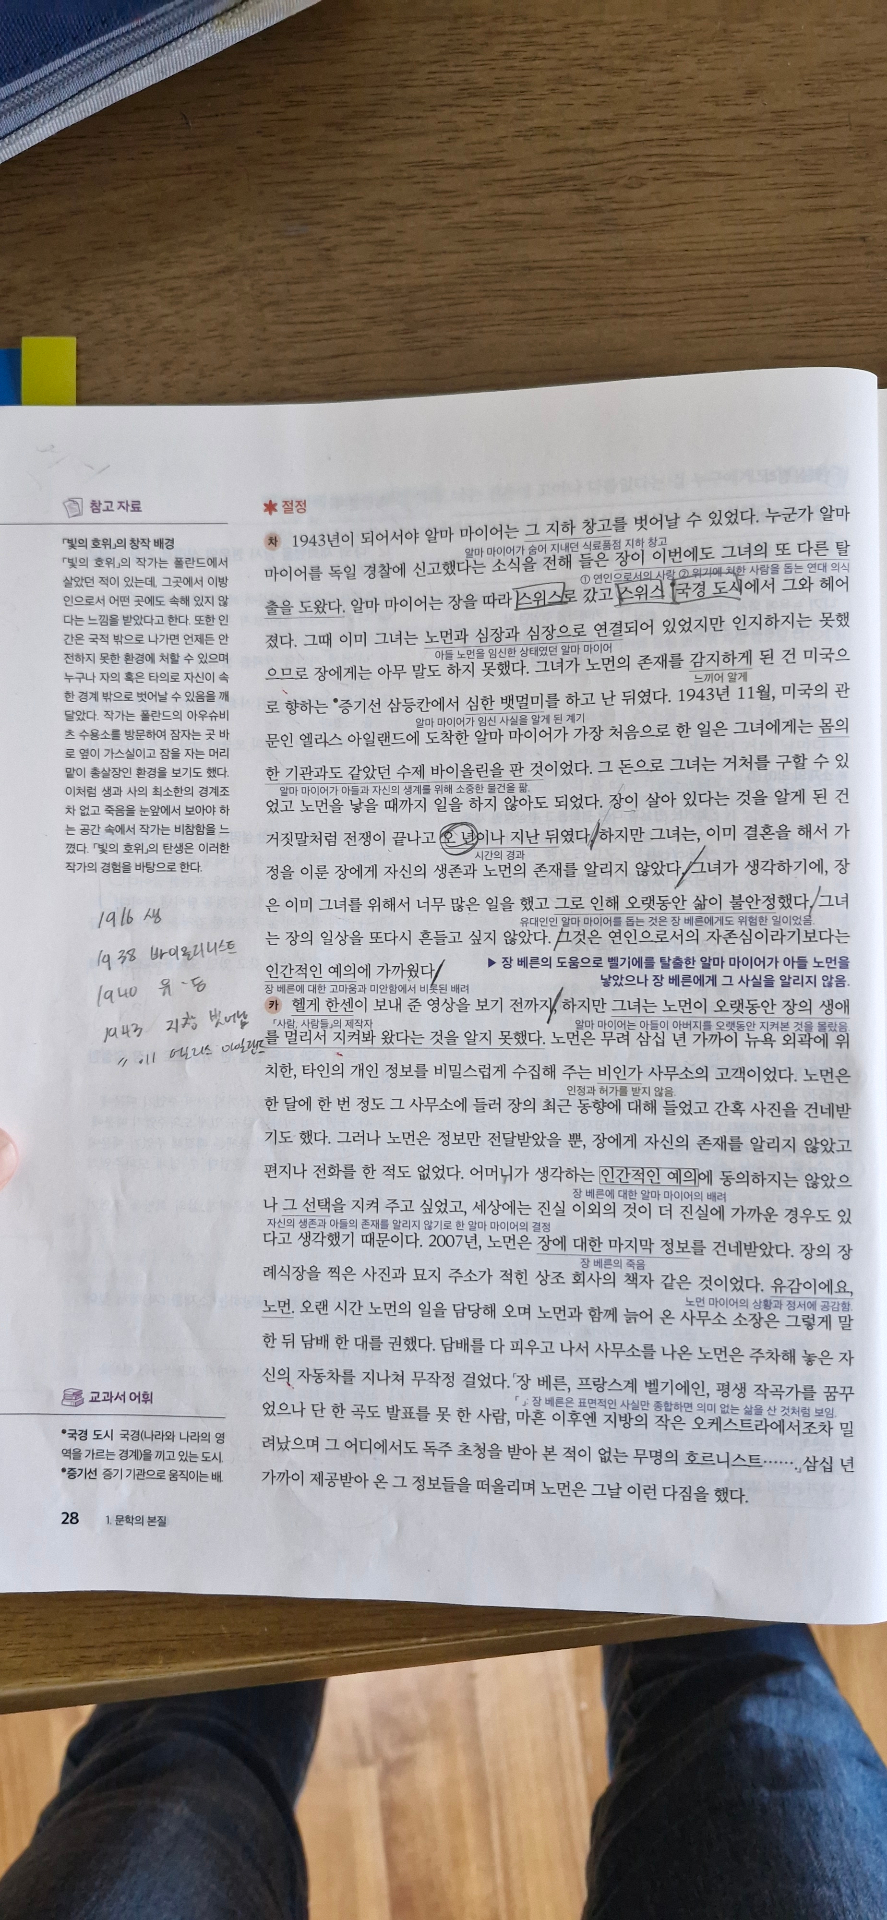 참고 자료
「빛의 호위」의 창작 배경
「빛의 호위」의 작가는 폴란드에서
살았던 적이 있는데, 그곳에서 이방
인으로서 어떤 곳에도 속해 있지 않
다는 느낌을 받았다고 한다. 또한 인
간은 국적 밖으로 나가면 언제든 안
전하지 못한 환경에 처할 수 있으며
누구나 자의 혹은 타의로 자신이 속
한 경계 밖으로 벗어날 수 있음을 깨
달았다. 작가는 폴란드의 아우슈비
츠 수용소를 방문하여 잠자는 곳 바
로 옆이 가스실이고 잠을 자는 머리
맡이 총살장인 환경을 보기도 했다.
이처럼 생과 사의 최소한의 경계조
차 없고 죽음을 눈앞에서 보아야 하
는 공간 속에서 작가는 비참함을 느
꼈다. 「빛의 호위」의 탄생은 이러한
작가의 경험을 바탕으로 한다.
1916 생
1938 바이올리니스트
1940 유-동
1943 지하 벗어남
〃 .11 엘리스 아일랜드
교과서 어휘
*국경 도시 국경(나라와 나라의 영
역을 가르는 경계)을 끼고 있는 도시.
*증기선 증기 기관으로 움직이는 배.
28 1. 문학의 본질
절정
차 1943년이 되어서야 알마 마이어는 그 지하 창고를 벗어날 수 있었다. 누군가 알마
알마 마이어가 숨어 지내던 식료품점 지하 창고
마이어를 독일 경찰에 신고했다는 소식을 전해 들은 장이 이번에도 그녀의 또 다른 탈
① 연인으로서의 사랑 ② 위기에 처한 사람을 돕는 연대 의식
출을 도왔다. 알마 마이어는 장을 따라 스위스로 갔고 스위스 *국경 도시에서 그와 헤어
졌다. 그때 이미 그녀는 노먼과 심장과 심장으로 연결되어 있었지만 인지하지는 못했
아들 노먼을 임신한 상태였던 알마 마이어
으므로 장에게는 아무 말도 하지 못했다. 그녀가 노먼의 존재를 감지하게 된 건 미국으
느끼어 알게
로 향하는 *증기선 삼등칸에서 심한 뱃멀미를 하고 난 뒤였다. 1943년 11월, 미국의 관
알마 마이어가 임신 사실을 알게 된 계기
문인 엘리스 아일랜드에 도착한 알마 마이어가 가장 처음으로 한 일은 그녀에게는 몸의
한 기관과도 같았던 수제 바이올린을 판 것이었다. 그 돈으로 그녀는 거처를 구할 수 있
알마 마이어가 아들과 자신의 생계를 위해 소중한 물건을 팖.
었고 노먼을 낳을 때까지 일을 하지 않아도 되었다. 장이 살아 있다는 것을 알게 된 건
거짓말처럼 전쟁이 끝나고 오 년이나 지난 뒤였다. 하지만 그녀는, 이미 결혼을 해서 가
시간의 경과
정을 이룬 장에게 자신의 생존과 노먼의 존재를 알리지 않았다. 그녀가 생각하기에, 장
은 이미 그녀를 위해서 너무 많은 일을 했고 그로 인해 오랫동안 삶이 불안정했다. 그녀
유대인인 알마 마이어를 돕는 것은 장 베른에게도 위험한 일이었음.
는 장의 일상을 또다시 흔들고 싶지 않았다. 그것은 연인으로서의 자존심이라기보다는
인간적인 예의에 가까웠다.
장 베른에 대한 고마움과 미안함에서 비롯된 배려
▶ 장 베른의 도움으로 벨기에를 탈출한 알마 마이어가 아들 노먼을
낳았으나 장 베른에게 그 사실을 알리지 않음.
카 헬게 한센이 보내 준 영상을 보기 전까지, 하지만 그녀는 노먼이 오랫동안 장의 생애
「사람, 사람들」의 제작자
알마 마이어는 아들이 아버지를 오랫동안 지켜본 것을 몰랐음.
를 멀리서 지켜봐 왔다는 것을 알지 못했다. 노먼은 무려 삼십 년 가까이 뉴욕 외곽에 위
치한, 타인의 개인 정보를 비밀스럽게 수집해 주는 비인가 사무소의 고객이었다. 노먼은
인정과 허가를 받지 않음.
한 달에 한 번 정도 그 사무소에 들러 장의 최근 동향에 대해 들었고 간혹 사진을 건네받
기도 했다. 그러나 노먼은 정보만 전달받았을 뿐, 장에게 자신의 존재를 알리지 않았고
편지나 전화를 한 적도 없었다. 어머니가 생각하는 인간적인 예의에 동의하지는 않았으
장 베른에 대한 알마 마이어의 배려
나 그 선택을 지켜 주고 싶었고, 세상에는 진실 이외의 것이 더 진실에 가까운 경우도 있
자신의 생존과 아들의 존재를 알리지 않기로 한 알마 마이어의 결정
다고 생각했기 때문이다. 2007년, 노먼은 장에 대한 마지막 정보를 건네받았다. 장의 장
장 베른의 죽음
례식장을 찍은 사진과 묘지 주소가 적힌 상조 회사의 책자 같은 것이었다. 유감이에요,
노먼 마이어의 상황과 정서에 공감함.
노먼. 오랜 시간 노먼의 일을 담당해 오며 노먼과 함께 늙어 온 사무소 소장은 그렇게 말
한 뒤 담배 한 대를 권했다. 담배를 다 피우고 나서 사무소를 나온 노먼은 주차해 놓은 자
신의 자동차를 지나쳐 무작정 걸었다.「장 베른, 프랑스계 벨기에인, 평생 작곡가를 꿈꾸
「 」: 장 베른은 표면적인 사실만 종합하면 의미 없는 삶을 산 것처럼 보임.
었으나 단 한 곡도 발표를 못 한 사람, 마흔 이후엔 지방의 작은 오케스트라에서조차 밀
려났으며 그 어디에서도 독주 초청을 받아 본 적이 없는 무명의 호르니스트…….」 삼십 년
가까이 제공받아 온 그 정보들을 떠올리며 노먼은 그날 이런 다짐을 했다.